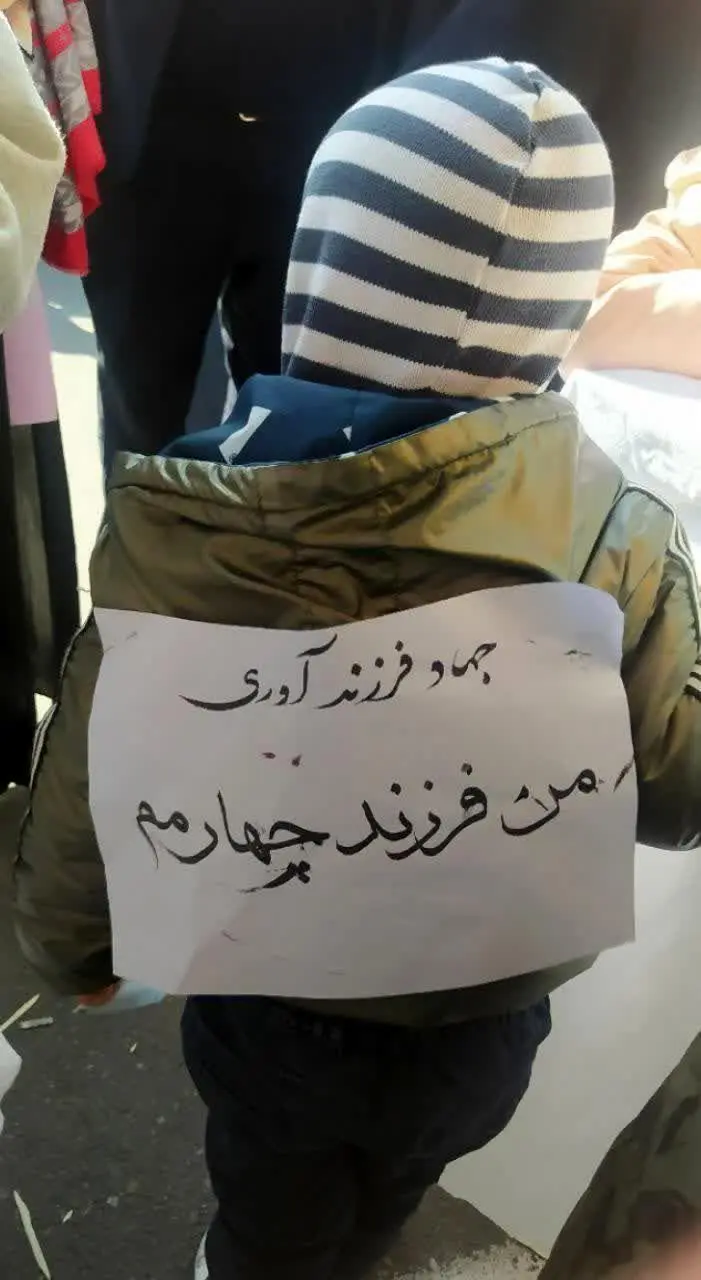 جهاد فرزند آوری
من فرزند چهارمم